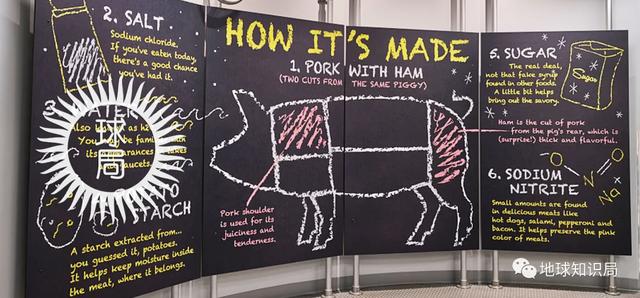 HOW IT'S MADE
1. PORK WITH HAM
(TWO CUTS FROM THE SAME PIGGY)
Pork shoulder
is used for its
juiciness and
tenderness.
Ham is the cut of pork
from the pig's rear, which is
(surprise!) thick and flavorful.
2. SALT
Sodium chloride.
If you've eaten today,
there's a good chance
you've had it.
3. WATER
Also
You may be
its
faucets.
TO
STARCH
A starch extracted from...
you guessed it, potatoes.
It helps keep moisture inside
the meat, where it belongs.
5. SUGAR
The real deal,
not that fake syrup
found in other foods.
A little bit helps
bring out the savory.
Sugar
6. SODIUM
NITRITE
Small amounts are found
in delicious meats like
hot dogs, salami, pepperoni and
bacon. It helps preserve the pink
color of meats.
O
N
O
Na
球局
地球知识局